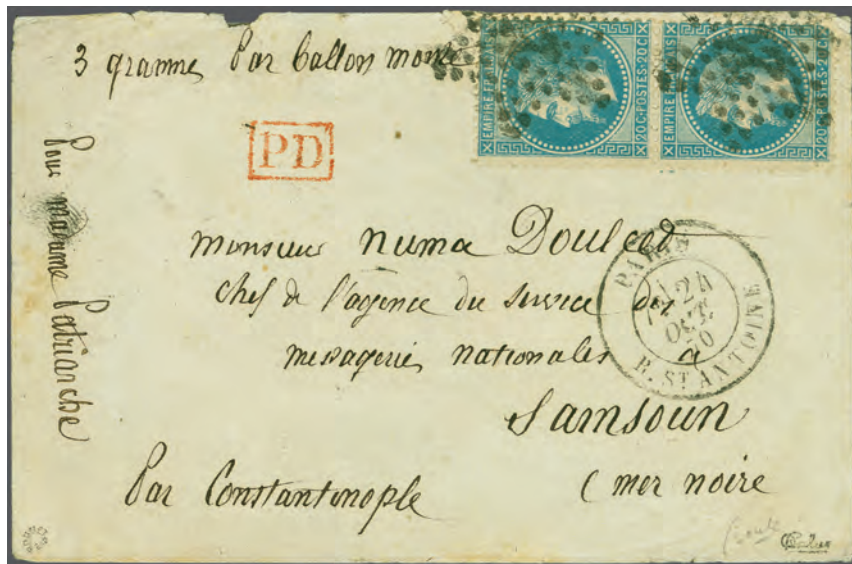 3 gramme Par ballon monté
EMPIRE FRANÇAIS
20 C·POSTES·20 C
EMPIRE FRANÇAIS
20 C·POSTES·20 C
PD
Pour madame Patriarche
monsieur numa
chef de l'agence du service des
messageries nationales à
Samsoun
Par Constantinople
(mer noire
PARIS
24
OCT.
70
R. ST ANTOINE